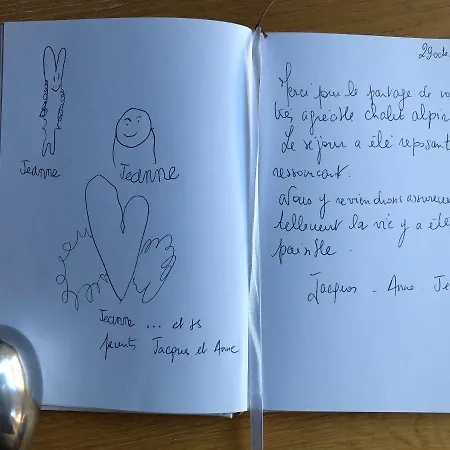 Jeanne
Jeanne
Jeanne ... et ss
parents Jacques et Anne
29 oct
Merci pour le partage de vo
très agréable chalet alpin
Le séjour a été reposant
ressourçant.
Nous y reviendrons assuréme
tellement la vie y a été
paisible.
Jacques - Anne - Je